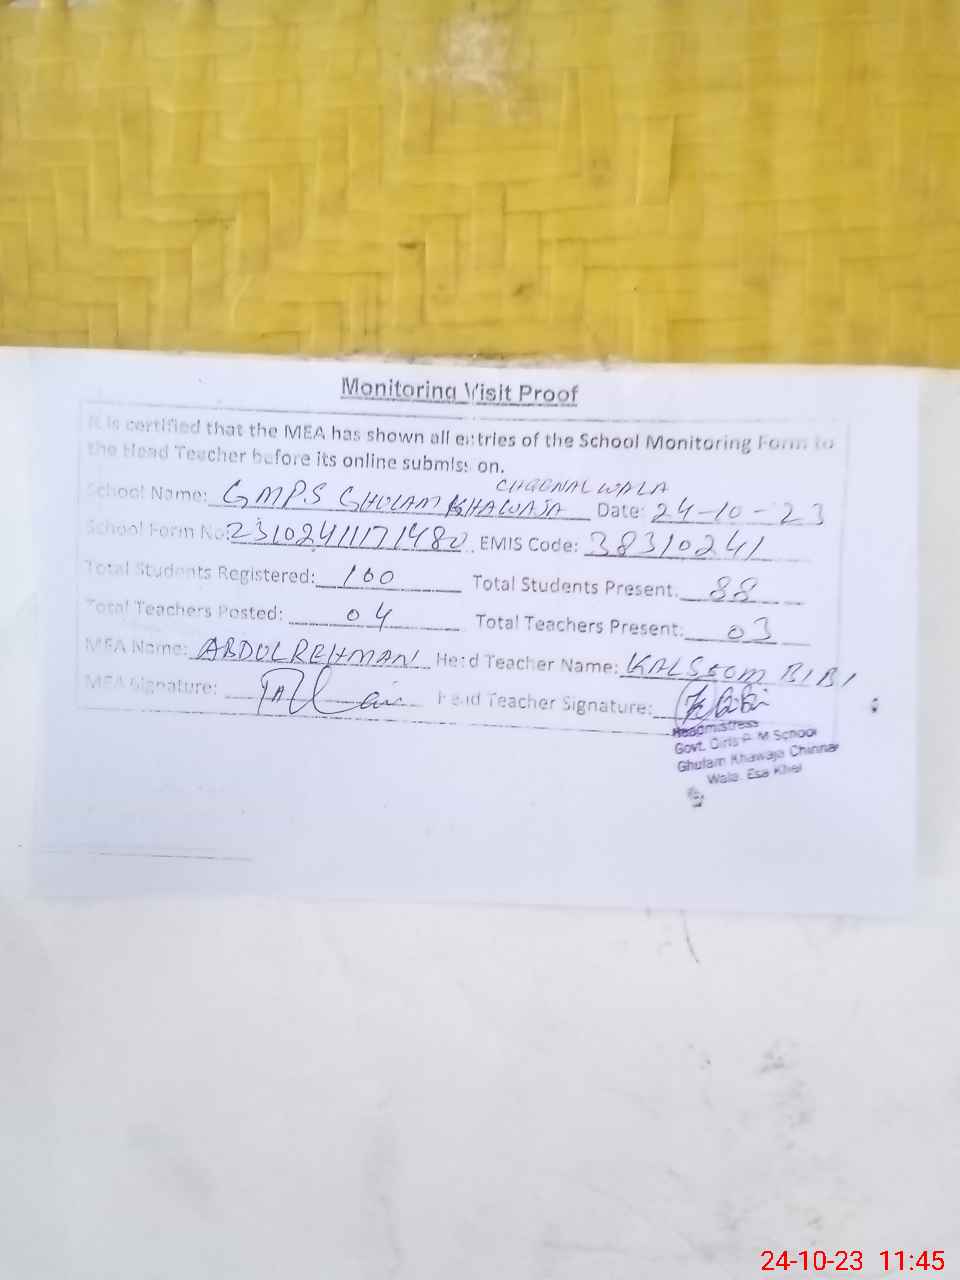 Monitoring Visit Proof
It is certified that the MEA has shown all entries of the School Monitoring Form to
the Head Teacher before its online submission.
School Name: GMP.S GHULAM KHAWAJA Date: 24-10-23
School Form No: 2310241117 1480 EMIS Code: 38310241
Total Students Registered: 100 Total Students Present: 88
Total Teachers Posted: 04 Total Teachers Present: 03
MEA Name: ABDULREHMAN Head Teacher Name: KALSOOM BIBI
MEA Signature: Head Teacher Signature:
Headmistress
Govt. Girls P. M School
Ghulam Khawaja Chinna
Wala Esa Khel
24-10-23 11:45